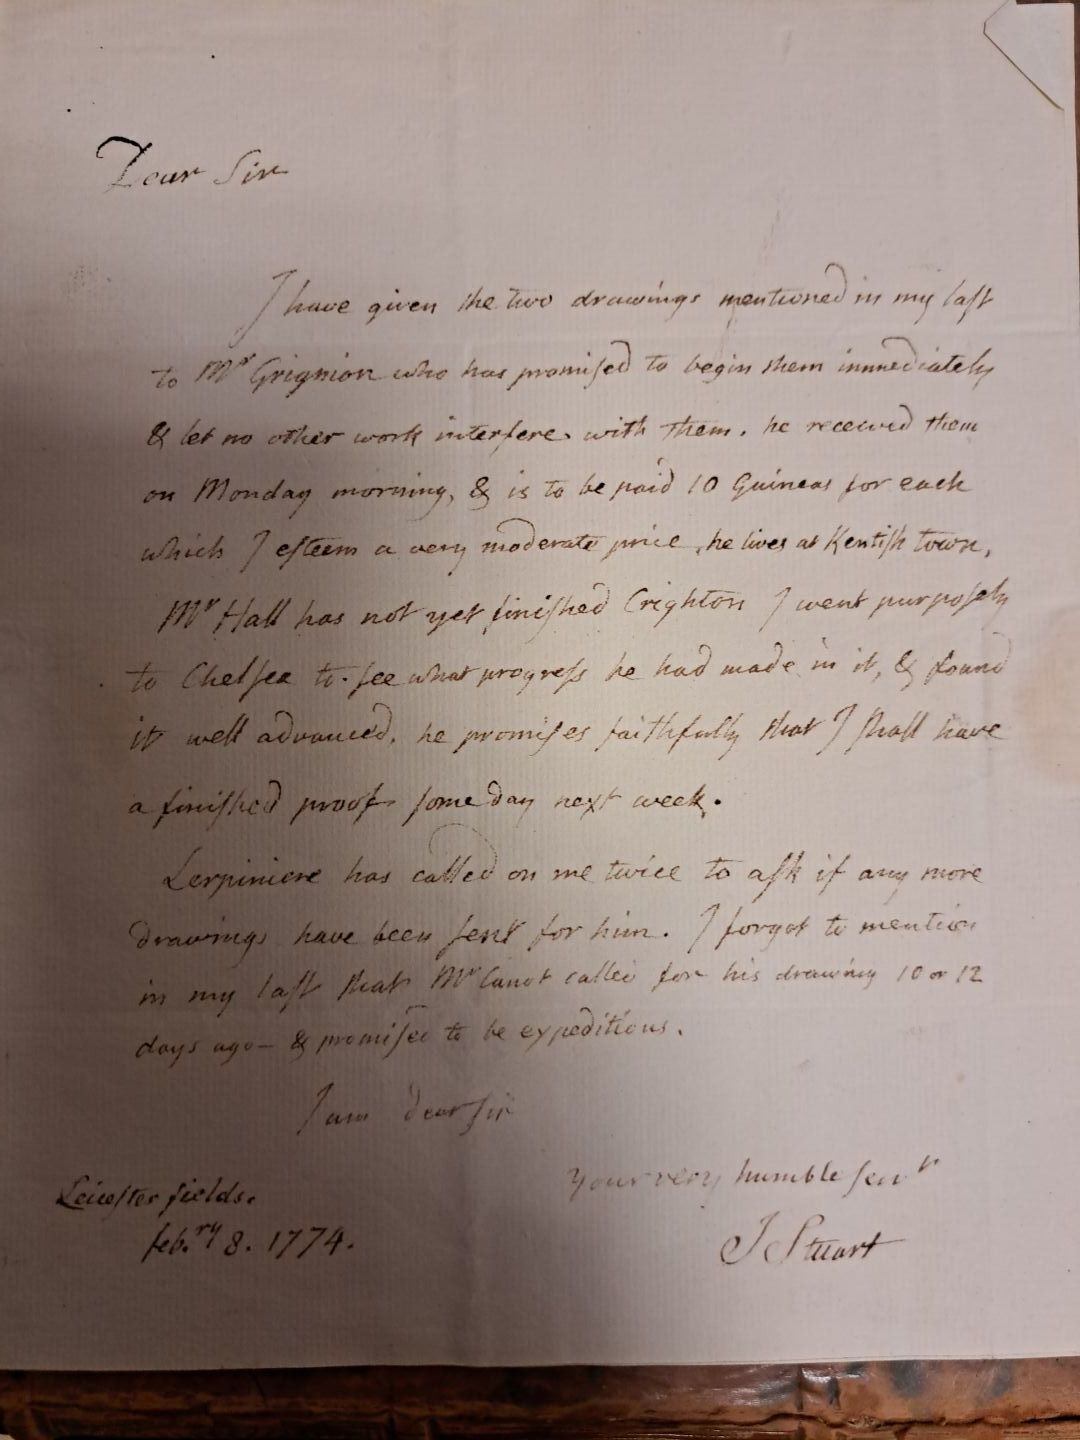 Dear Sir
I have given the two drawings mentioned in my last
to Mr Grignion who has promised to begin them immediately
& let no other work interfere with them. he received them
on Monday morning, & is to be paid 10 Guineas for each
which I esteem a very moderate price, he lives at Kentish town,
Mr Hall has not yet finished Crighton I went purposely
to Chelsea to see what progress he had made in it, & found
it well advanced, he promises faithfully that I shall have
a finished proof some day next week.
Lerpiniere has called on me twice to ask if any more
drawings have been sent for him. I forgot to mention
in my last that Mr Canot called for his drawing 10 or 12
days ago — & promised to be expeditious.
I am dear Sir
Your very humble servt
Leicester fields.
feb.ry 8. 1774.
J Stuart